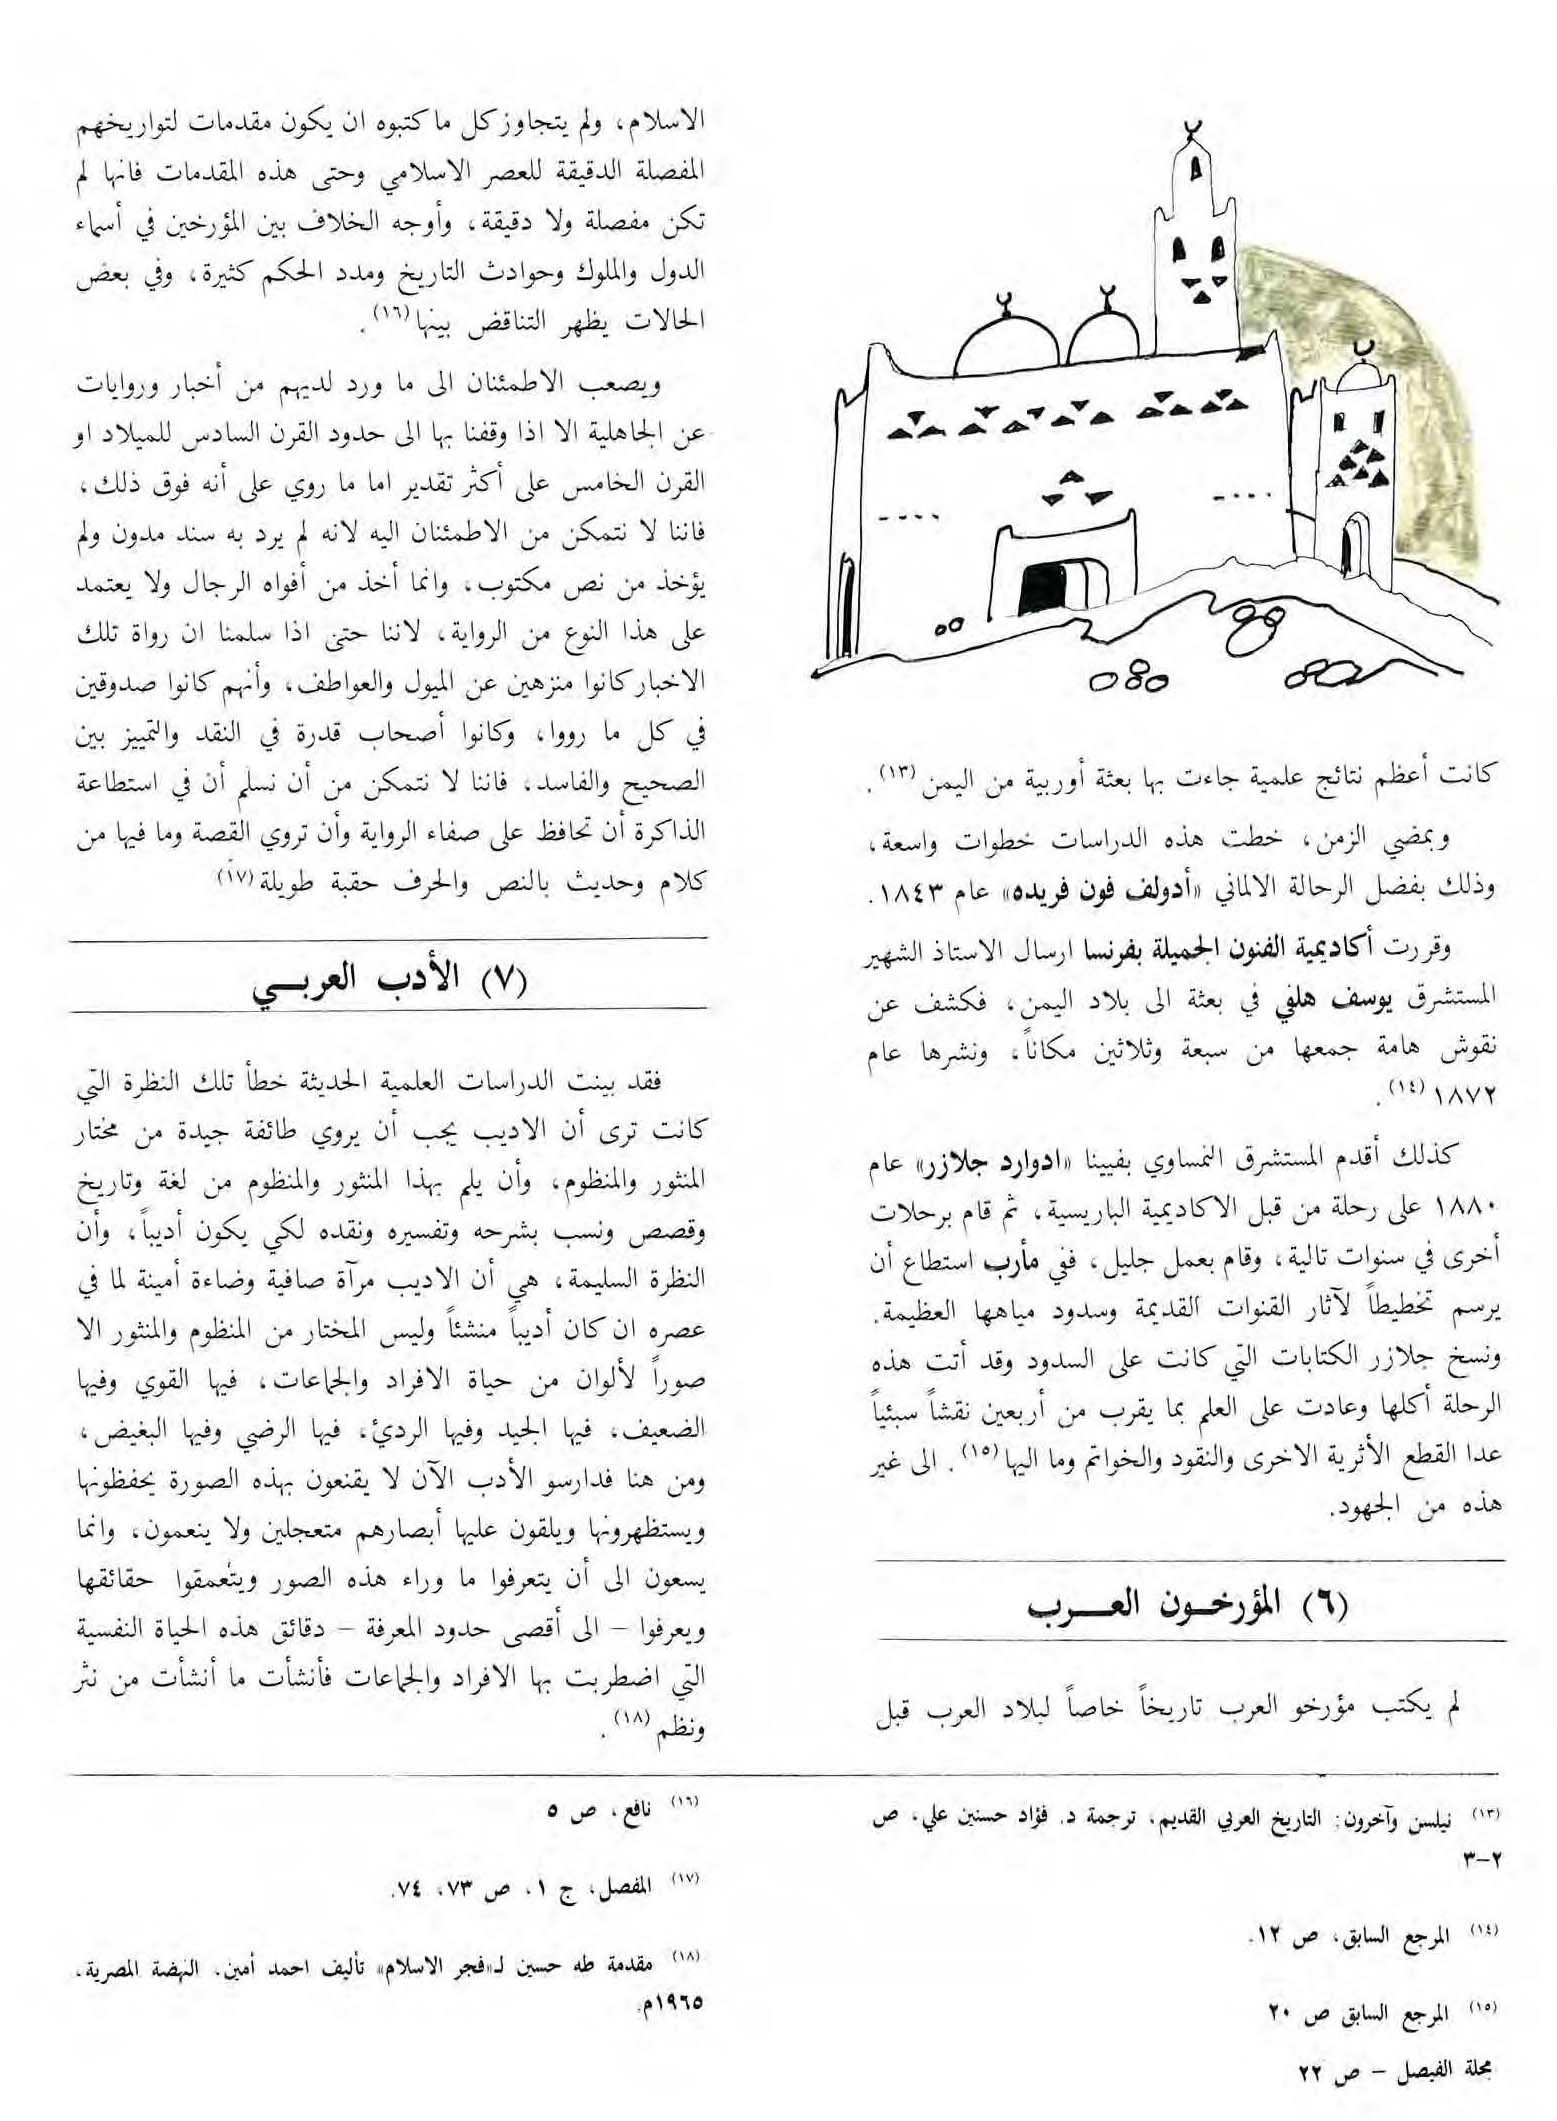 كانت أعظم نتائج علمية جاءت بها بعثة أوربية من اليمن (١٣).
وبمضي الزمن، خطت هذه الدراسات خطوات واسعة،
وذلك بفضل الرحالة الالماني «أدولف فون فريده» عام ١٨٤٣.
وقررت أكاديمية الفنون الجميلة بفرنسا ارسال الاستاذ الشهير
المستشرق يوسف هلفي في بعثة الى بلاد اليمن، فكشف عن
نقوش هامة جمعها من سبعة وثلاثين مكاناً، ونشرها عام
١٨٧٢ (١٤).
كذلك أقدم المستشرق النمساوي بفيينا «ادوارد جلازر» عام
١٨٨٠ على رحلة من قبل الاكاديمية الباريسية، ثم قام برحلات
أخرى في سنوات تالية، وقام بعمل جليل، ففي مأرب استطاع أن
يرسم تخطيطاً لآثار القنوات القديمة وسدود مياهها العظيمة.
ونسخ جلازر الكتابات التي كانت على السدود وقد أتت هذه
الرحلة أكلها وعادت على العلم بما يقرب من أربعين نقشاً سبئياً
عدا القطع الأثرية الاخرى والنقود والخواتم وما اليها (١٥). الى غير
هذه من الجهود.
(٦) المؤرخـون العـــرب
لم يكتب مؤرخو العرب تاريخاً خاصاً لبلاد العرب قبل
الاسلام، ولم يتجاوز كل ما كتبوه ان يكون مقدمات لتواريخهم
المفصلة الدقيقة للعصر الاسلامي وحتى هذه المقدمات فانها لم
تكن مفصلة ولا دقيقة، وأوجه الخلاف بين المؤرخين في أسماء
الدول والملوك وحوادث التاريخ ومدد الحكم كثيرة، وفي بعض
الحالات يظهر التناقض بينها (١٦).
ويصعب الاطمئنان الى ما ورد لديهم من أخبار وروايات
عن الجاهلية الا اذا وقفنا بها الى حدود القرن السادس للميلاد او
القرن الخامس على أكثر تقدير اما ما روي على أنه فوق ذلك،
فاننا لا نتمكن من الاطمئنان اليه لانه لم يرد به سند مدون ولم
يؤخذ من نص مكتوب، وانما أخذ من أفواه الرجال ولا يعتمد
على هذا النوع من الرواية، لاننا حتى اذا سلمنا ان رواة تلك
الاخبار كانوا منزهين عن الميول والعواطف، وأنهم كانوا صدوقين
في كل ما رووا، وكانوا أصحاب قدرة في النقد والتمييز بين
الصحيح والفاسد، فاننا لا نتمكن من أن نسلم أن في استطاعة
الذاكرة أن تحافظ على صفاء الرواية وأن تروي القصة وما فيها من
كلام وحديث بالنص والحرف حقبة طويلة (١٧)
(٧) الأدب العربـــي
فقد بينت الدراسات العلمية الحديثة خطأ تلك النظرة التي
كانت ترى أن الاديب يجب أن يروي طائفة جيدة من مختار
المنثور والمنظوم، وأن يلم بهذا المنثور والمنظوم من لغة وتاريخ
وقصص ونسب بشرحه وتفسيره ونقده لكي يكون أديباً، وأن
النظرة السليمة، هي أن الاديب مرآة صافية وضاءة أمينة لما في
عصره ان كان أديباً منشئاً وليس المختار من المنظوم والمنثور الا
صوراً لألوان من حياة الافراد والجماعات، فيها القوي وفيها
الضعيف، فيها الجيد وفيها الردئ، فيها الرضي وفيها البغيض،
ومن هنا فدارسو الأدب الآن لا يقنعون بهذه الصورة يحفظونها
ويستظهرونها ويلقون عليها أبصارهم متعجلين ولا ينعمون، وانما
يسعون الى أن يتعرفوا ما وراء هذه الصور ويتعمقوا حقائقها
ويعرفوا – الى أقصى حدود المعرفة – دقائق هذه الحياة النفسية
التي اضطربت بها الافراد والجماعات فأنشأت ما أنشأت من نثر
ونظم (١٨).
(١٣) نيلسن وآخرون: التاريخ العربي القديم، ترجمة د. فؤاد حسنين علي، ص
٢–٣
(١٤) المرجع السابق، ص ١٢.
(١٥) المرجع السابق ص ٢٠
(١٦) نافع، ص ٥
(١٧) المفصل، ج ١، ص ٧٣، ٧٤.
(١٨) مقدمة طه حسين لـ«فجر الاسلام» تأليف احمد أمين، النهضة المصرية،
١٩٦٥م.
مجلة الفيصل – ص ٢٢